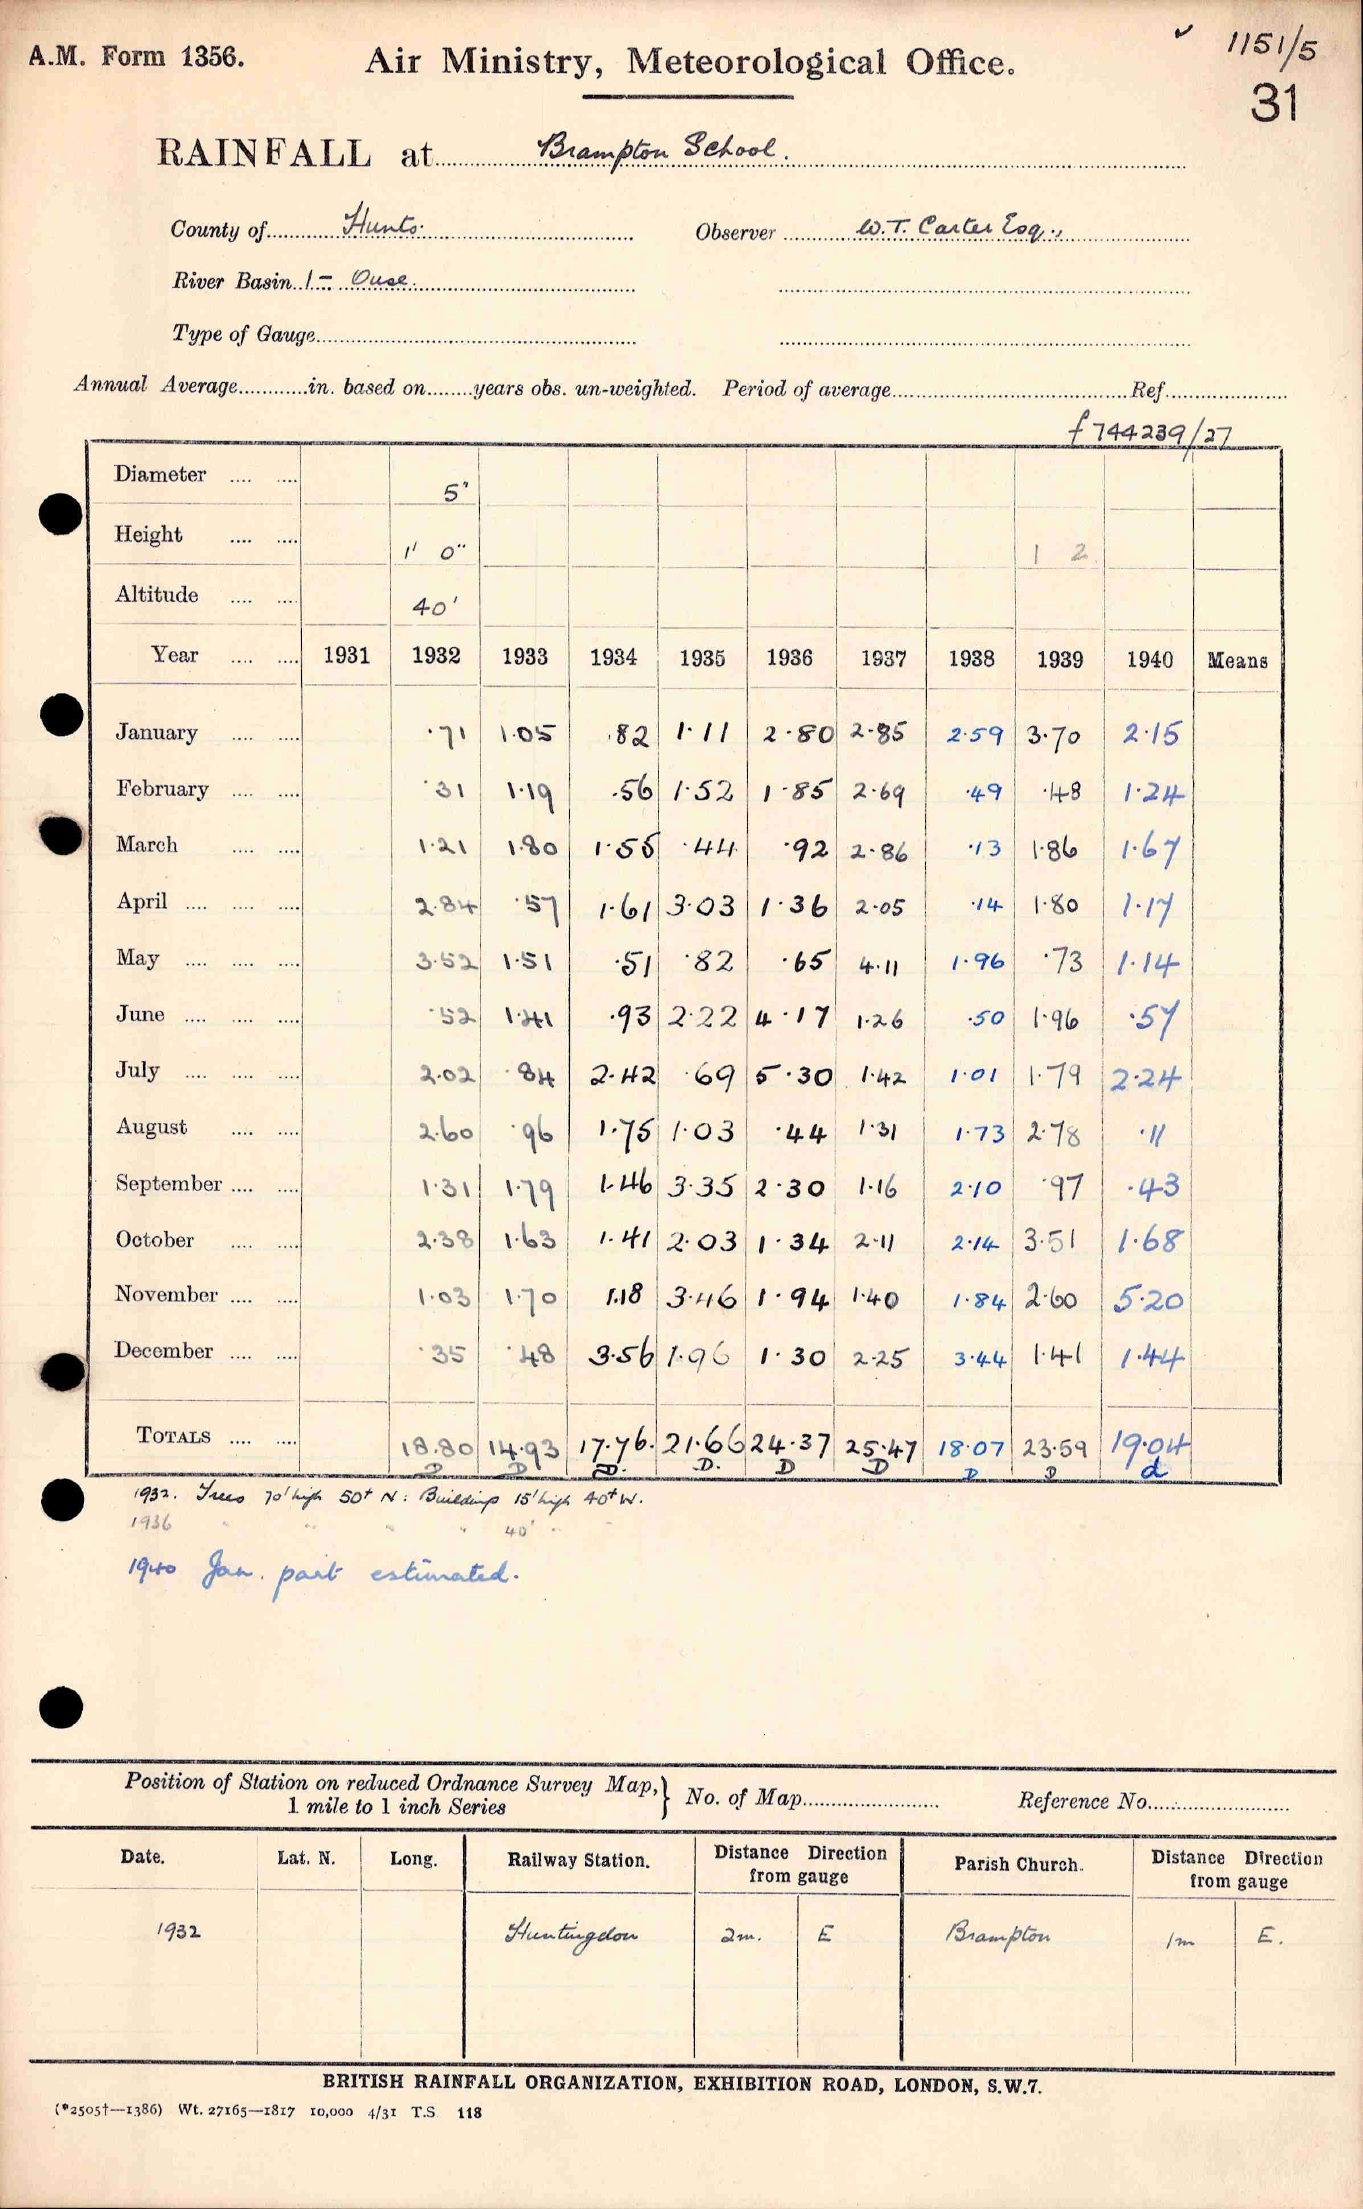 A.M. Form 1356. Air Ministry, Meteorological Office. 1151/5
31
RAINFALL at Brampton School.
County of Hunts. Observer W.T. Carter Esq.,
River Basin 1 – Ouse.
Type of Gauge
Annual Average in. based on years obs. un-weighted. Period of average Ref.
f744239/27
Diameter 5"
Height 1' 0" 1 2
Altitude 40'
Year 1931 1932 1933 1934 1935 1936 1937 1938 1939 1940 Means
January ·71 1·05 ·82 1·11 2·80 2·85 2·59 3·70 2·15
February ·31 1·19 ·56 1·52 1·85 2·69 ·49 ·48 1·24
March 1·21 1·80 1·55 ·44 ·92 2·86 ·13 1·86 1·67
April 2·84 ·57 1·61 3·03 1·36 2·05 ·14 1·80 1·17
May 3·52 1·51 ·51 ·82 ·65 4·11 1·96 ·73 1·14
June ·52 1·41 ·93 2·22 4·17 1·26 ·50 1·96 ·57
July 2·02 ·84 2·42 ·69 5·30 1·42 1·01 1·79 2·24
August 2·60 ·96 1·75 1·03 ·44 1·31 1·73 2·78 ·11
September 1·31 1·79 1·46 3·35 2·30 1·16 2·10 ·97 ·43
October 2·38 1·63 1·41 2·03 1·34 2·11 2·14 3·51 1·68
November 1·03 1·70 1·18 3·46 1·94 1·40 1·84 2·60 5·20
December ·35 ·48 3·56 1·96 1·30 2·25 3·44 1·41 1·44
TOTALS 18.80 14·93 17·76. 21·66 24·37 25·47 18·07 23·59 19·04
D D D. D. D D D D d
1932. Trees 70' high 50ft N: Buildings 15' high 40ft W.
1936 " " " " 40' " "
1940 Jan. part estimated.
Position of Station on reduced Ordnance Survey Map,} No. of Map Reference No.
1 mile to 1 inch Series
Date. Lat. N. Long. Railway Station. Distance Direction from gauge Parish Church. Distance Direction from gauge
1932 Huntingdon 2m. E Brampton 1m E.
BRITISH RAINFALL ORGANIZATION, EXHIBITION ROAD, LONDON, S.W.7.
(*2505†—1386) Wt. 27165—1817 10,000 4/31 T.S. 118